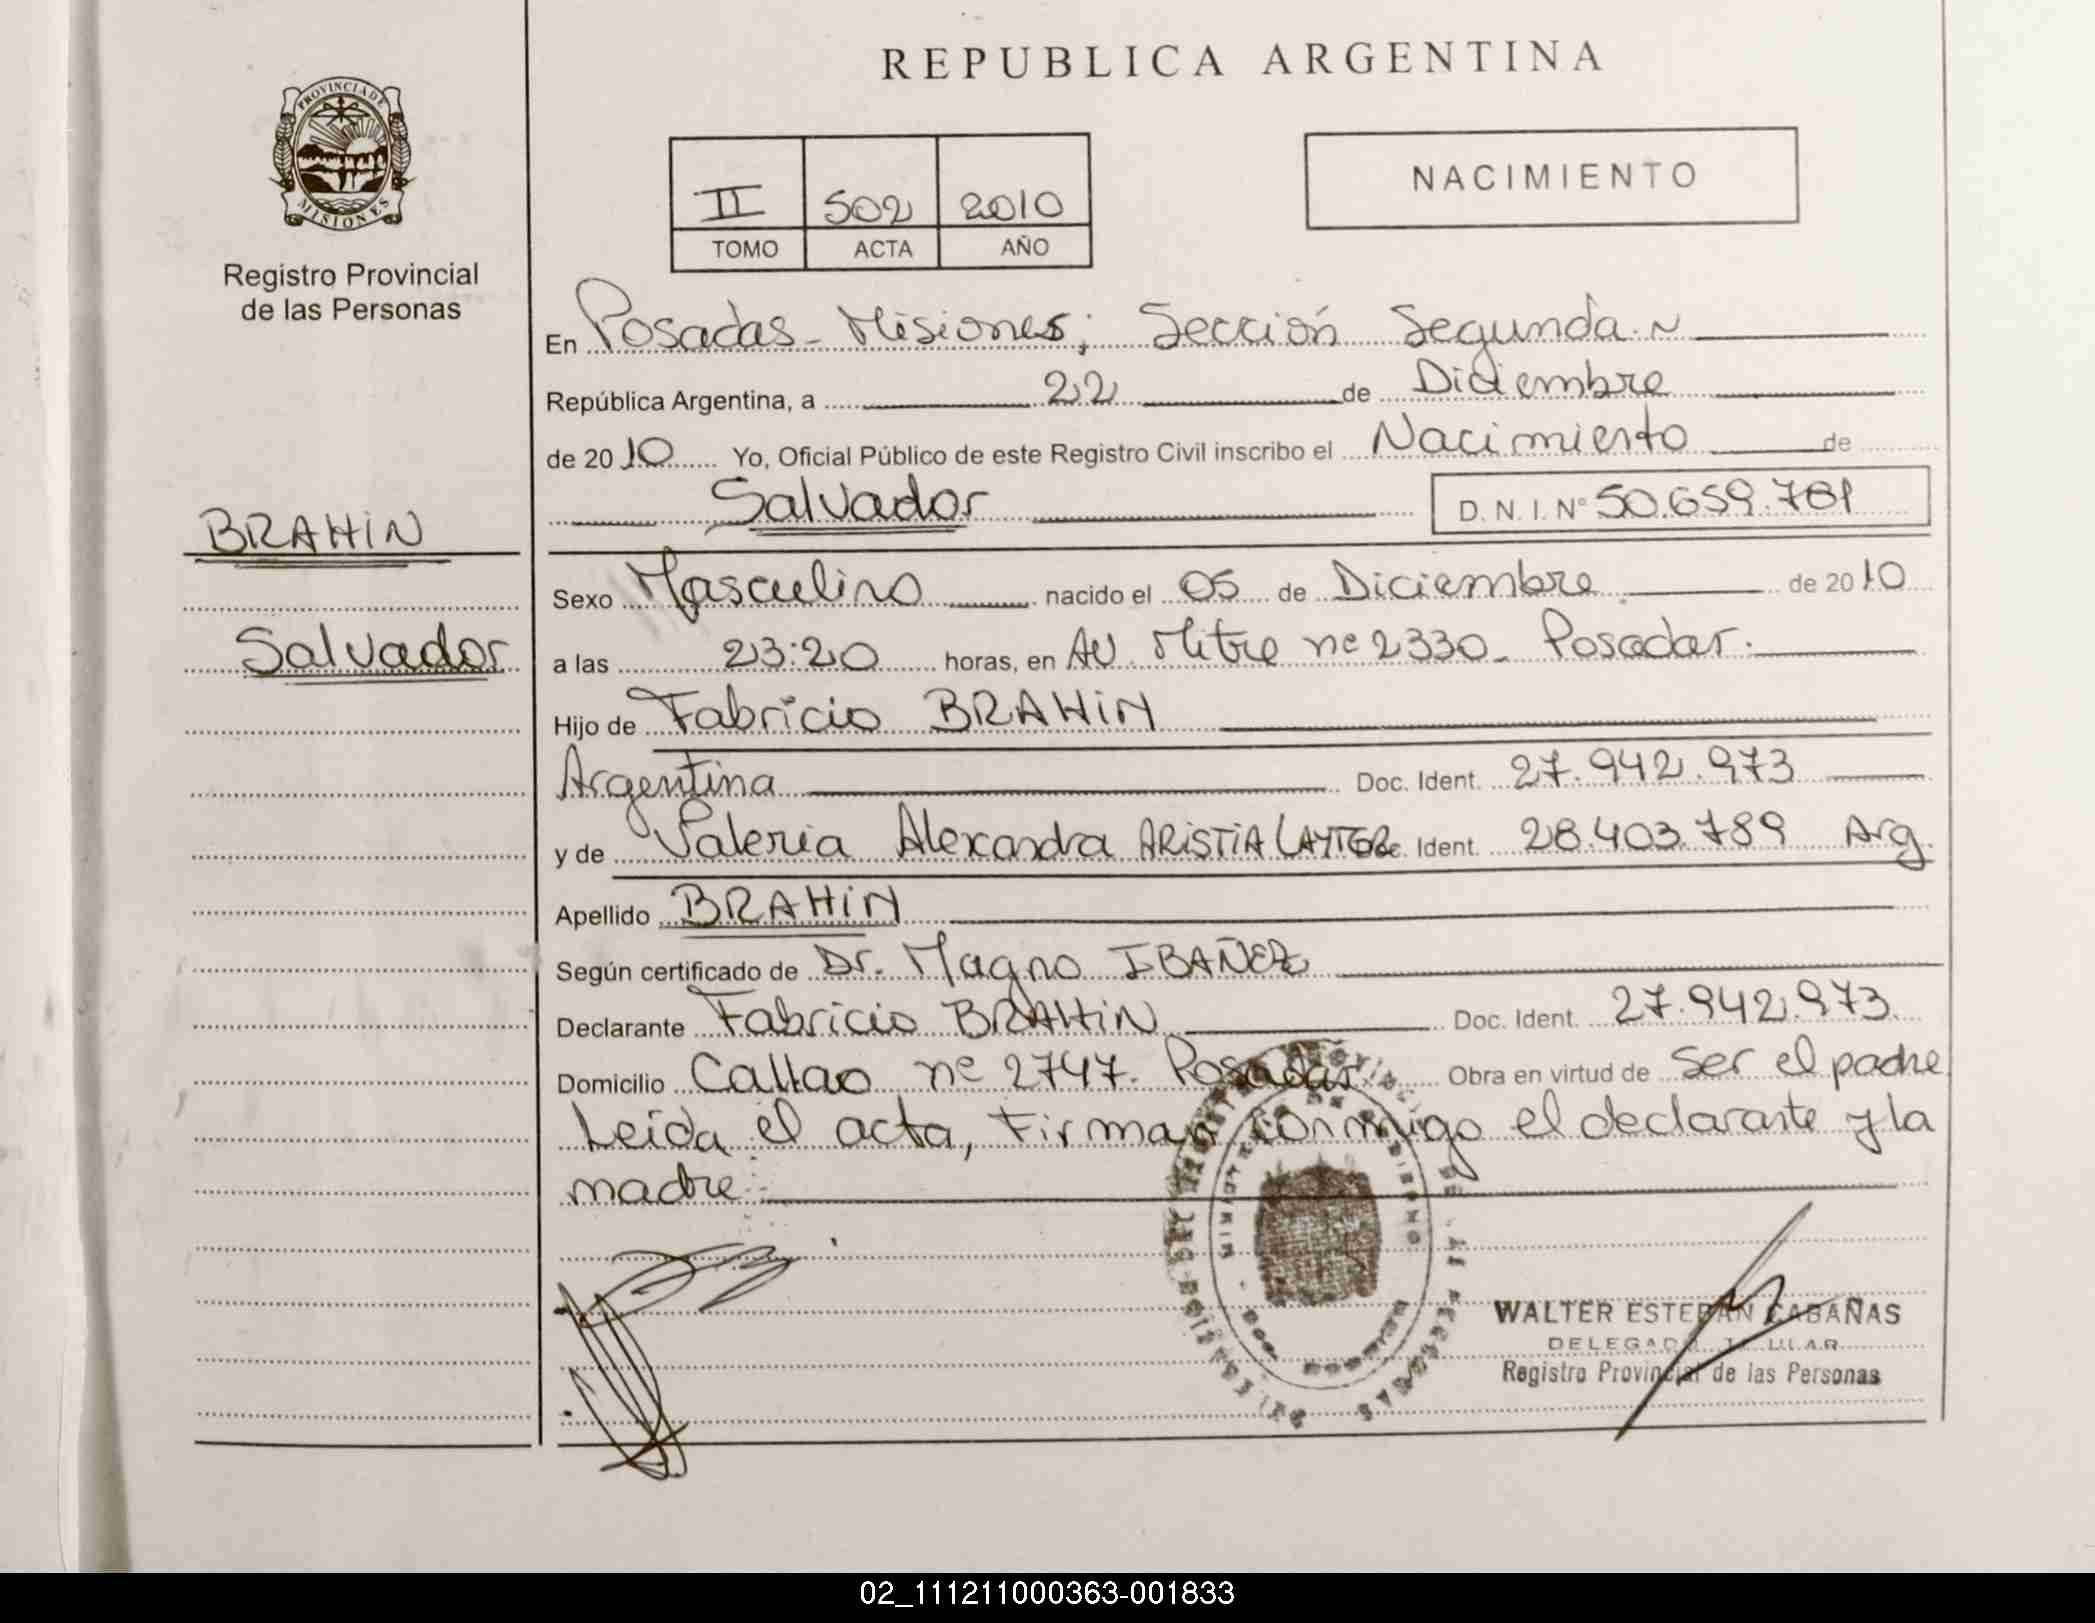 REPUBLICA ARGENTINA
PROVINCIA DE
MISIONES
Registro Provincial
de las Personas
NACIMIENTO
II 502 2010
TOMO ACTA AÑO
En Posadas - Misiones; Sección Segunda
República Argentina, a 22 de Diciembre
de 2010 Yo, Oficial Público de este Registro Civil inscribo el Nacimiento de
Salvador D.N.I. Nº 50.659.781
BRAHIN
Sexo Masculino nacido el 05 de Diciembre de 2010
Salvador
a las 23:20 horas, en AV. Mitre nº 2330 - Posadas.
Hijo de Fabricio BRAHIN
Argentina Doc. Ident. 27.942.973
y de Valeria Alexandra ARISTIA Ident. 28.403.789 Arg.
Apellido BRAHIN
Según certificado de Dr. Magno IBAÑEZ
Declarante Fabricio BRAHIN Doc. Ident. 27.942.973
Domicilio Callao nº 2747. Posadas Obra en virtud de ser el padre
Leída el acta, Firman conmigo el declarante y la
madre
WALTER ESTEBAN CABAÑAS
DELEGADO TITULAR
Registro Provincial de las Personas
02_111211000363-001833